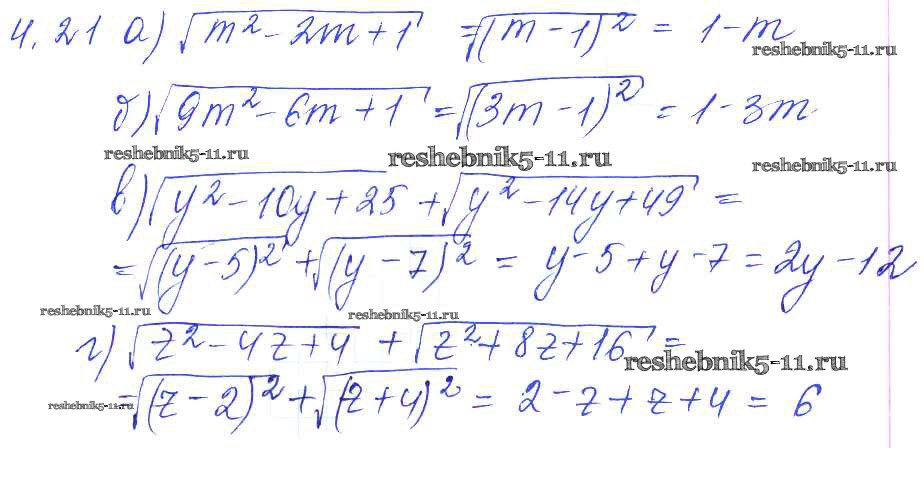 4.21 а) √(m² - 2m + 1) = √(m - 1)² = 1 - m
reshebnik5-11.ru
б) √(9m² - 6m + 1) = √(3m - 1)² = 1 - 3m
reshebnik5-11.ru reshebnik5-11.ru reshebnik5-11.ru
в) √(y² - 10y + 25) + √(y² - 14y + 49) =
= √(y - 5)² + √(y - 7)² = y - 5 + y - 7 = 2y - 12
reshebnik5-11.ru reshebnik5-11.ru
г) √(z² - 4z + 4) + √(z² + 8z + 16) =
reshebnik5-11.ru
= √(z - 2)² + √(z + 4)² = 2 - z + z + 4 = 6
reshebnik5-11.ru